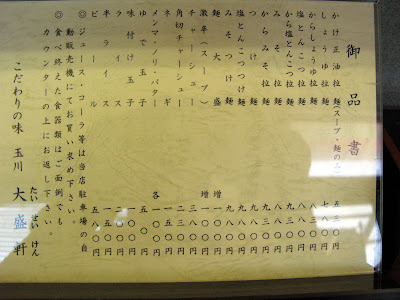 御品書
かけ正油拉麺(スープ・麺のみ) 五三〇円
しょうゆ拉麺 七八〇円
からしょうゆ拉麺 八三〇円
塩とんこつ拉麺 円
から塩とんこつ拉麺 九三〇円
みそ拉麺 八三〇円
からみそ拉麺 八八〇円
つけ麺 八八〇円
塩とんこつつけ麺 九八〇円
みそつけ麺 九八〇円
麺大盛 増一〇〇円
激辛(スープ) 増一〇〇円
チャーシュー 円
角切チャーシュー 円
ネギ 一五〇円
メンマ・ノリ・バター 各一〇〇円
ゆで玉子 五〇円
味付け玉子 一〇〇円
ライス 円
半ライス 一〇〇円
ビール 五八〇円
◎ジュース・コーラ等は当店駐車場の自
動販売機にてお買い求め下さい。
◎食べ終えた食器類はご面倒でも
カウンターの上にお返し下さい。
こだわりの味 玉川 大盛軒
たいせいけん